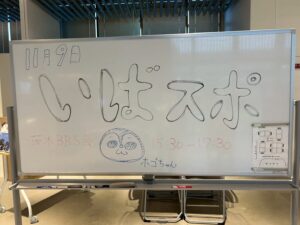 11月9日
いばスポ
茨木BBS会 15:30-17:30
ホゴちゃん